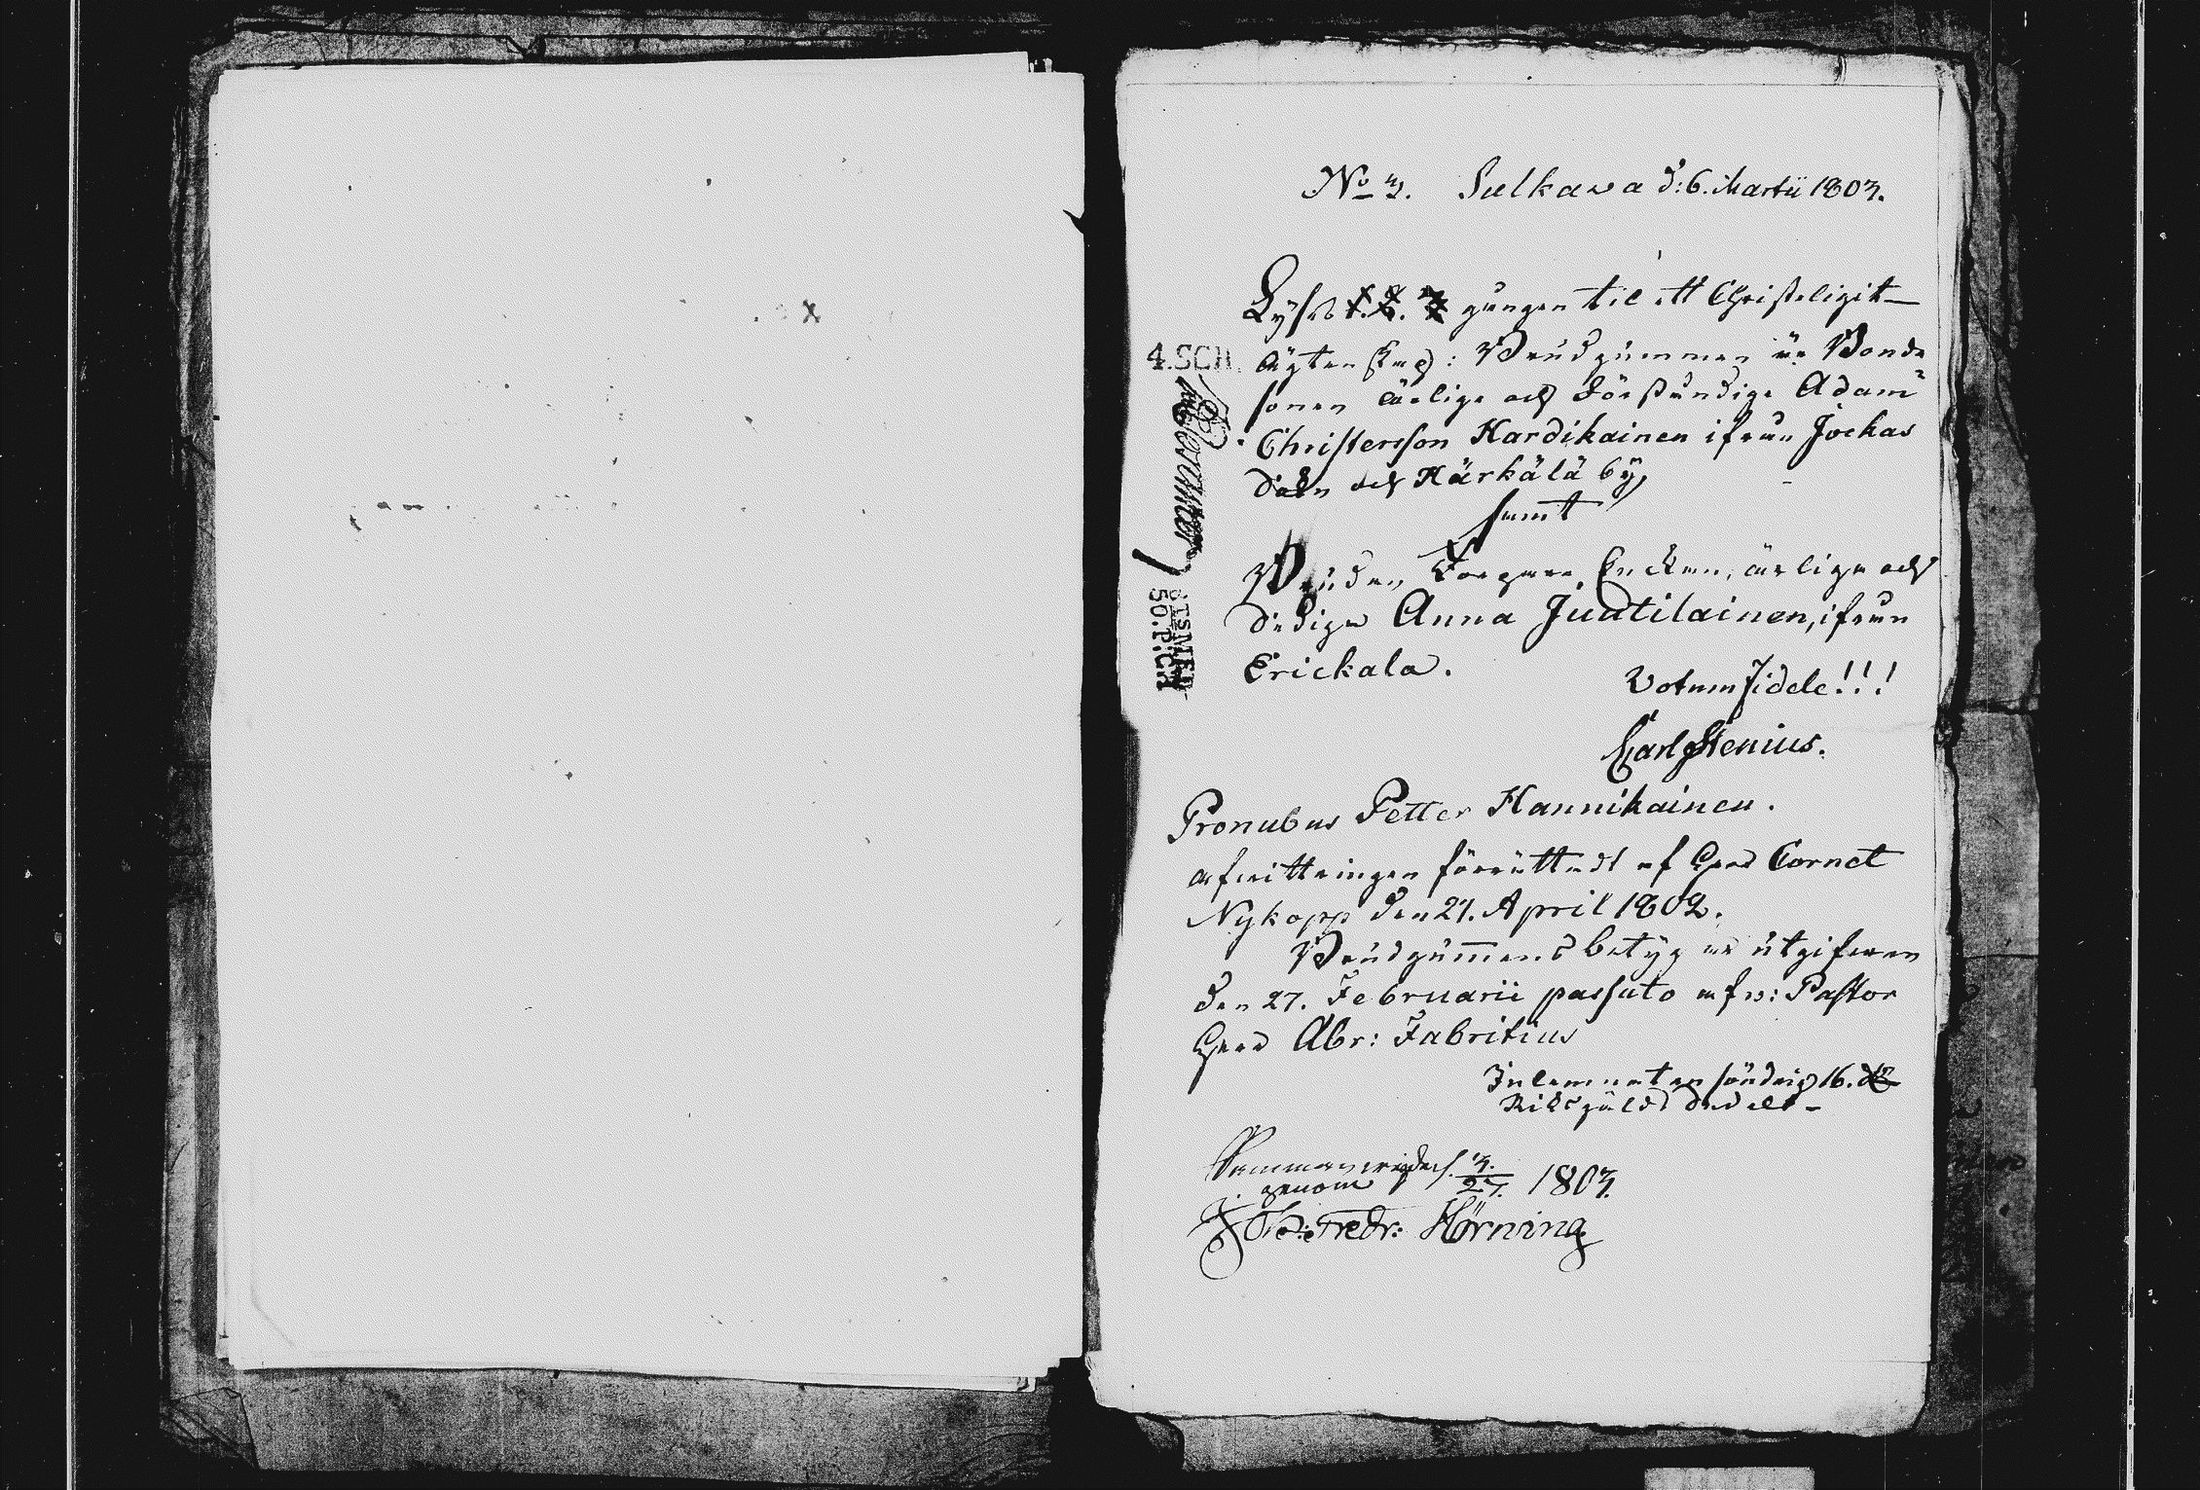 No 3. Sulkava d: 6. Martii 1803.
Lyses 1. 2. 3 gången til ett Christeligit
ägtenskap: Brudgummen är Bonde
sonen ärlige och Förståndige Adam
Christersson Kardikainen ifrån Jockas
Sokn och Härkälä by,
samt
4.SCH.
Bruden, Torpare Enckan, ärliga och
dädiga Anna Juutilainen, ifrån
Erickala.
50.P.C:
Votum fidele!!!
Carl Stenius.
Pronubus Petter Hannikainen.
afwittringen förrättadt af Herr Cornet
Nykopp den 21. April 1802.
Brudgummens betyg är utgifwen
den 27. Februarii passato af v: Pastor
Herr Abr: Fabritius
16.
Riksgälds
Sammanwigde d. 3./27. 1803.
genom
Fredr: Hörning